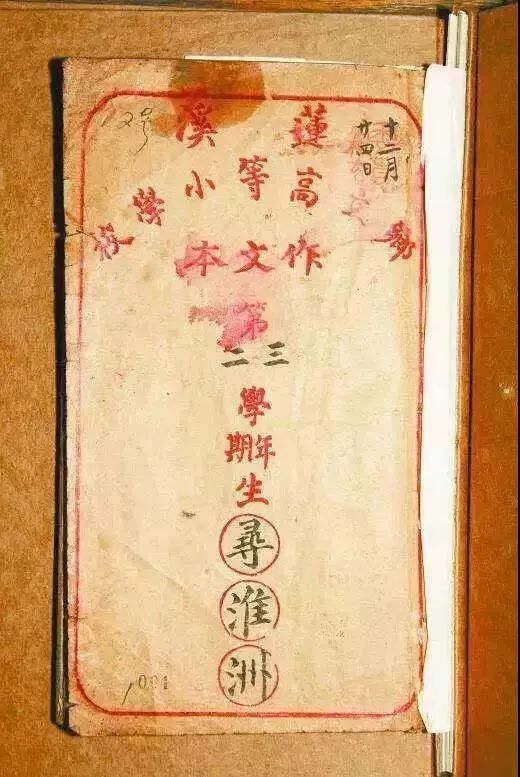 十二月
廿四日
12号
立蓮溪
高等小學校
作文本
第
三二
學
年期
生
尋淮洲